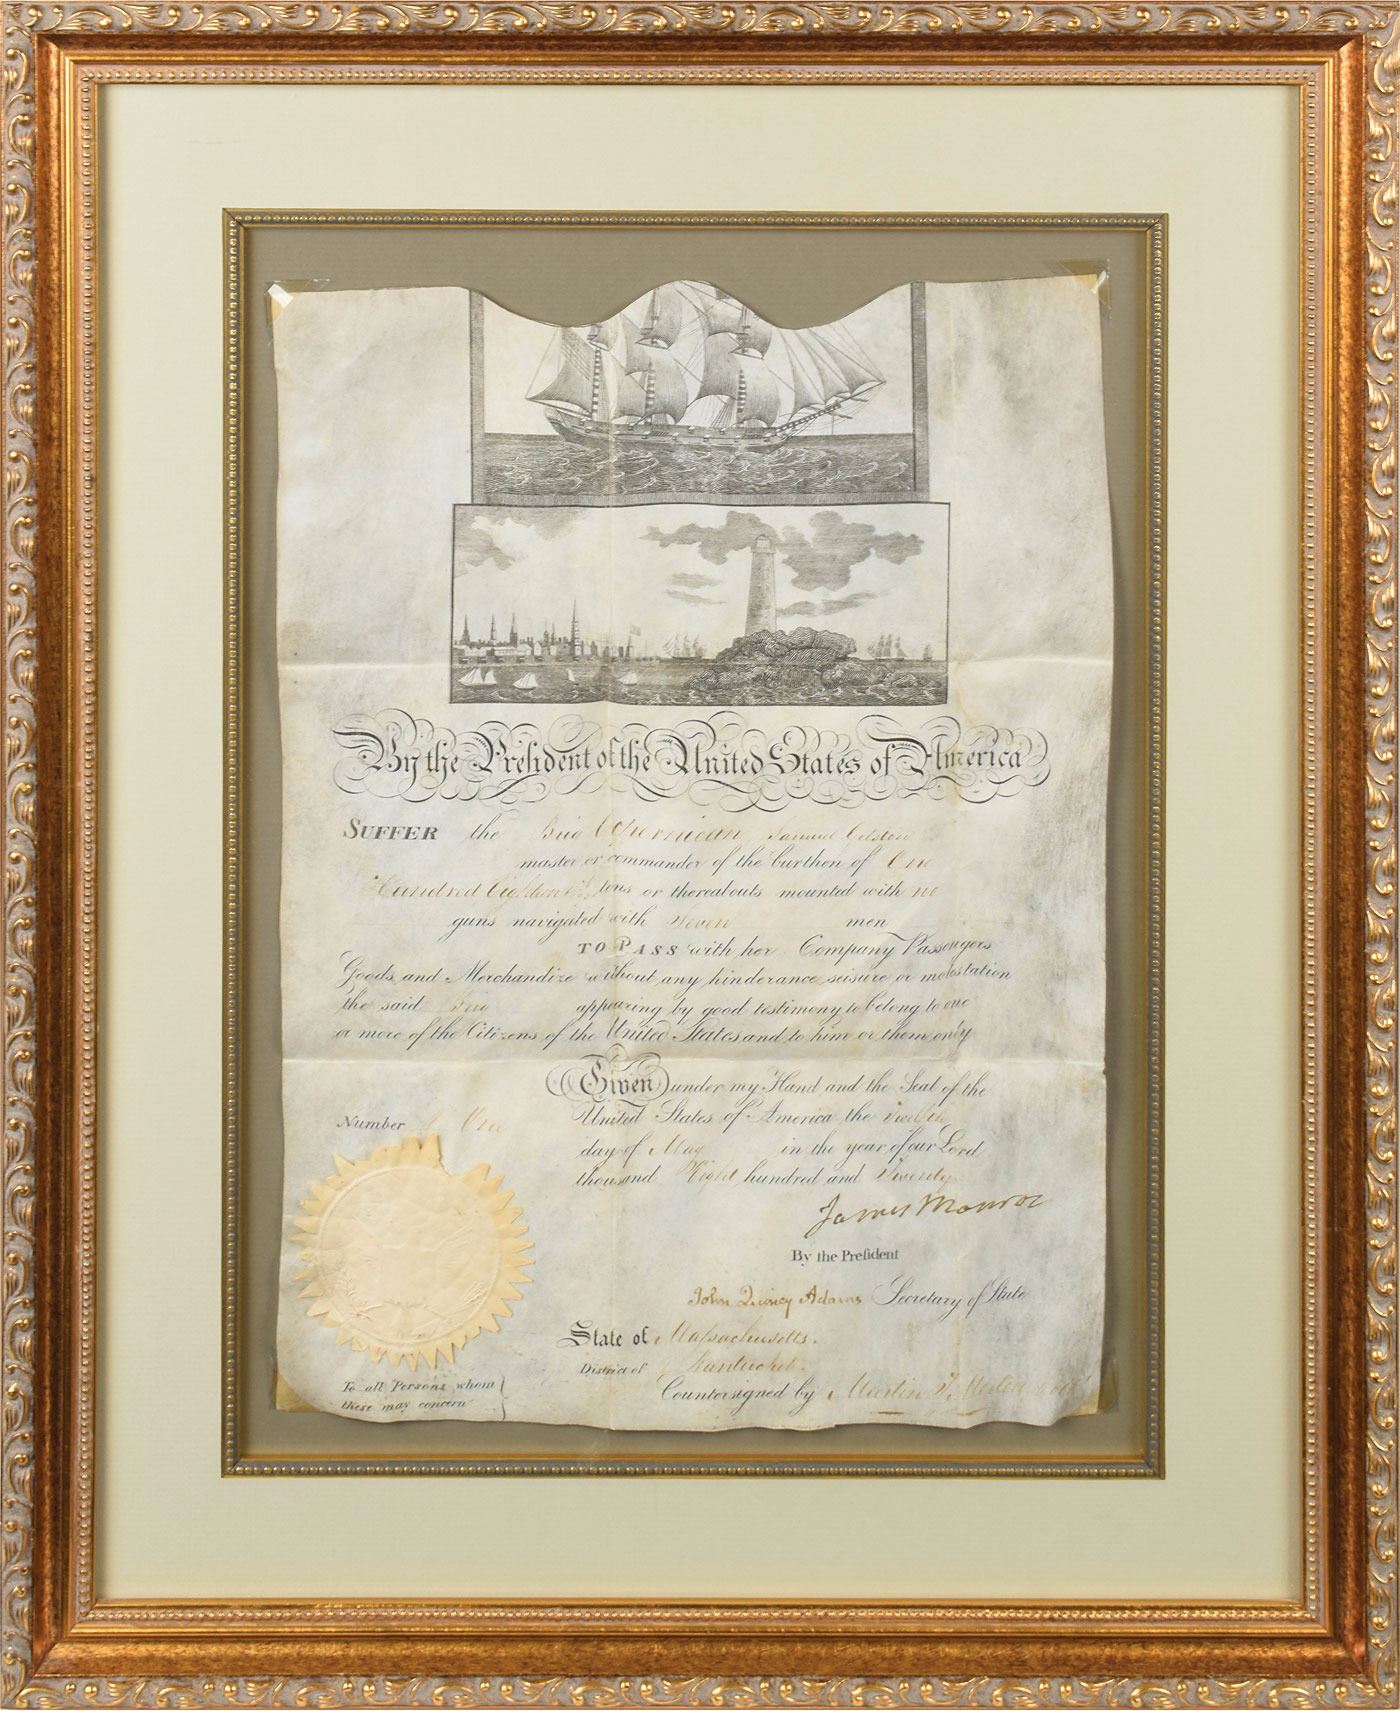 By the President of the United States of America
SUFFER the Brig Samuel
master or commander of the burthen of One
Hundred tons or thereabouts mounted with no
guns navigated with Seven men
TO PASS with her Company Passengers
Goods and Merchandize without any hinderance seisure or molestation
the said Brig appearing by good testimony to belong to one
or more of the Citizens of the United States and to him or them only
Given under my Hand and the Seal of the
United States of America the twelfth
Number One
day of May in the year of our Lord
thousand Eight hundred and Twenty
James Monroe
By the President
John Quincy Adams Secretary of State
State of Massachusetts.
District of Nantucket.
To all Persons whom
these may concern
Countersigned by Martin T.